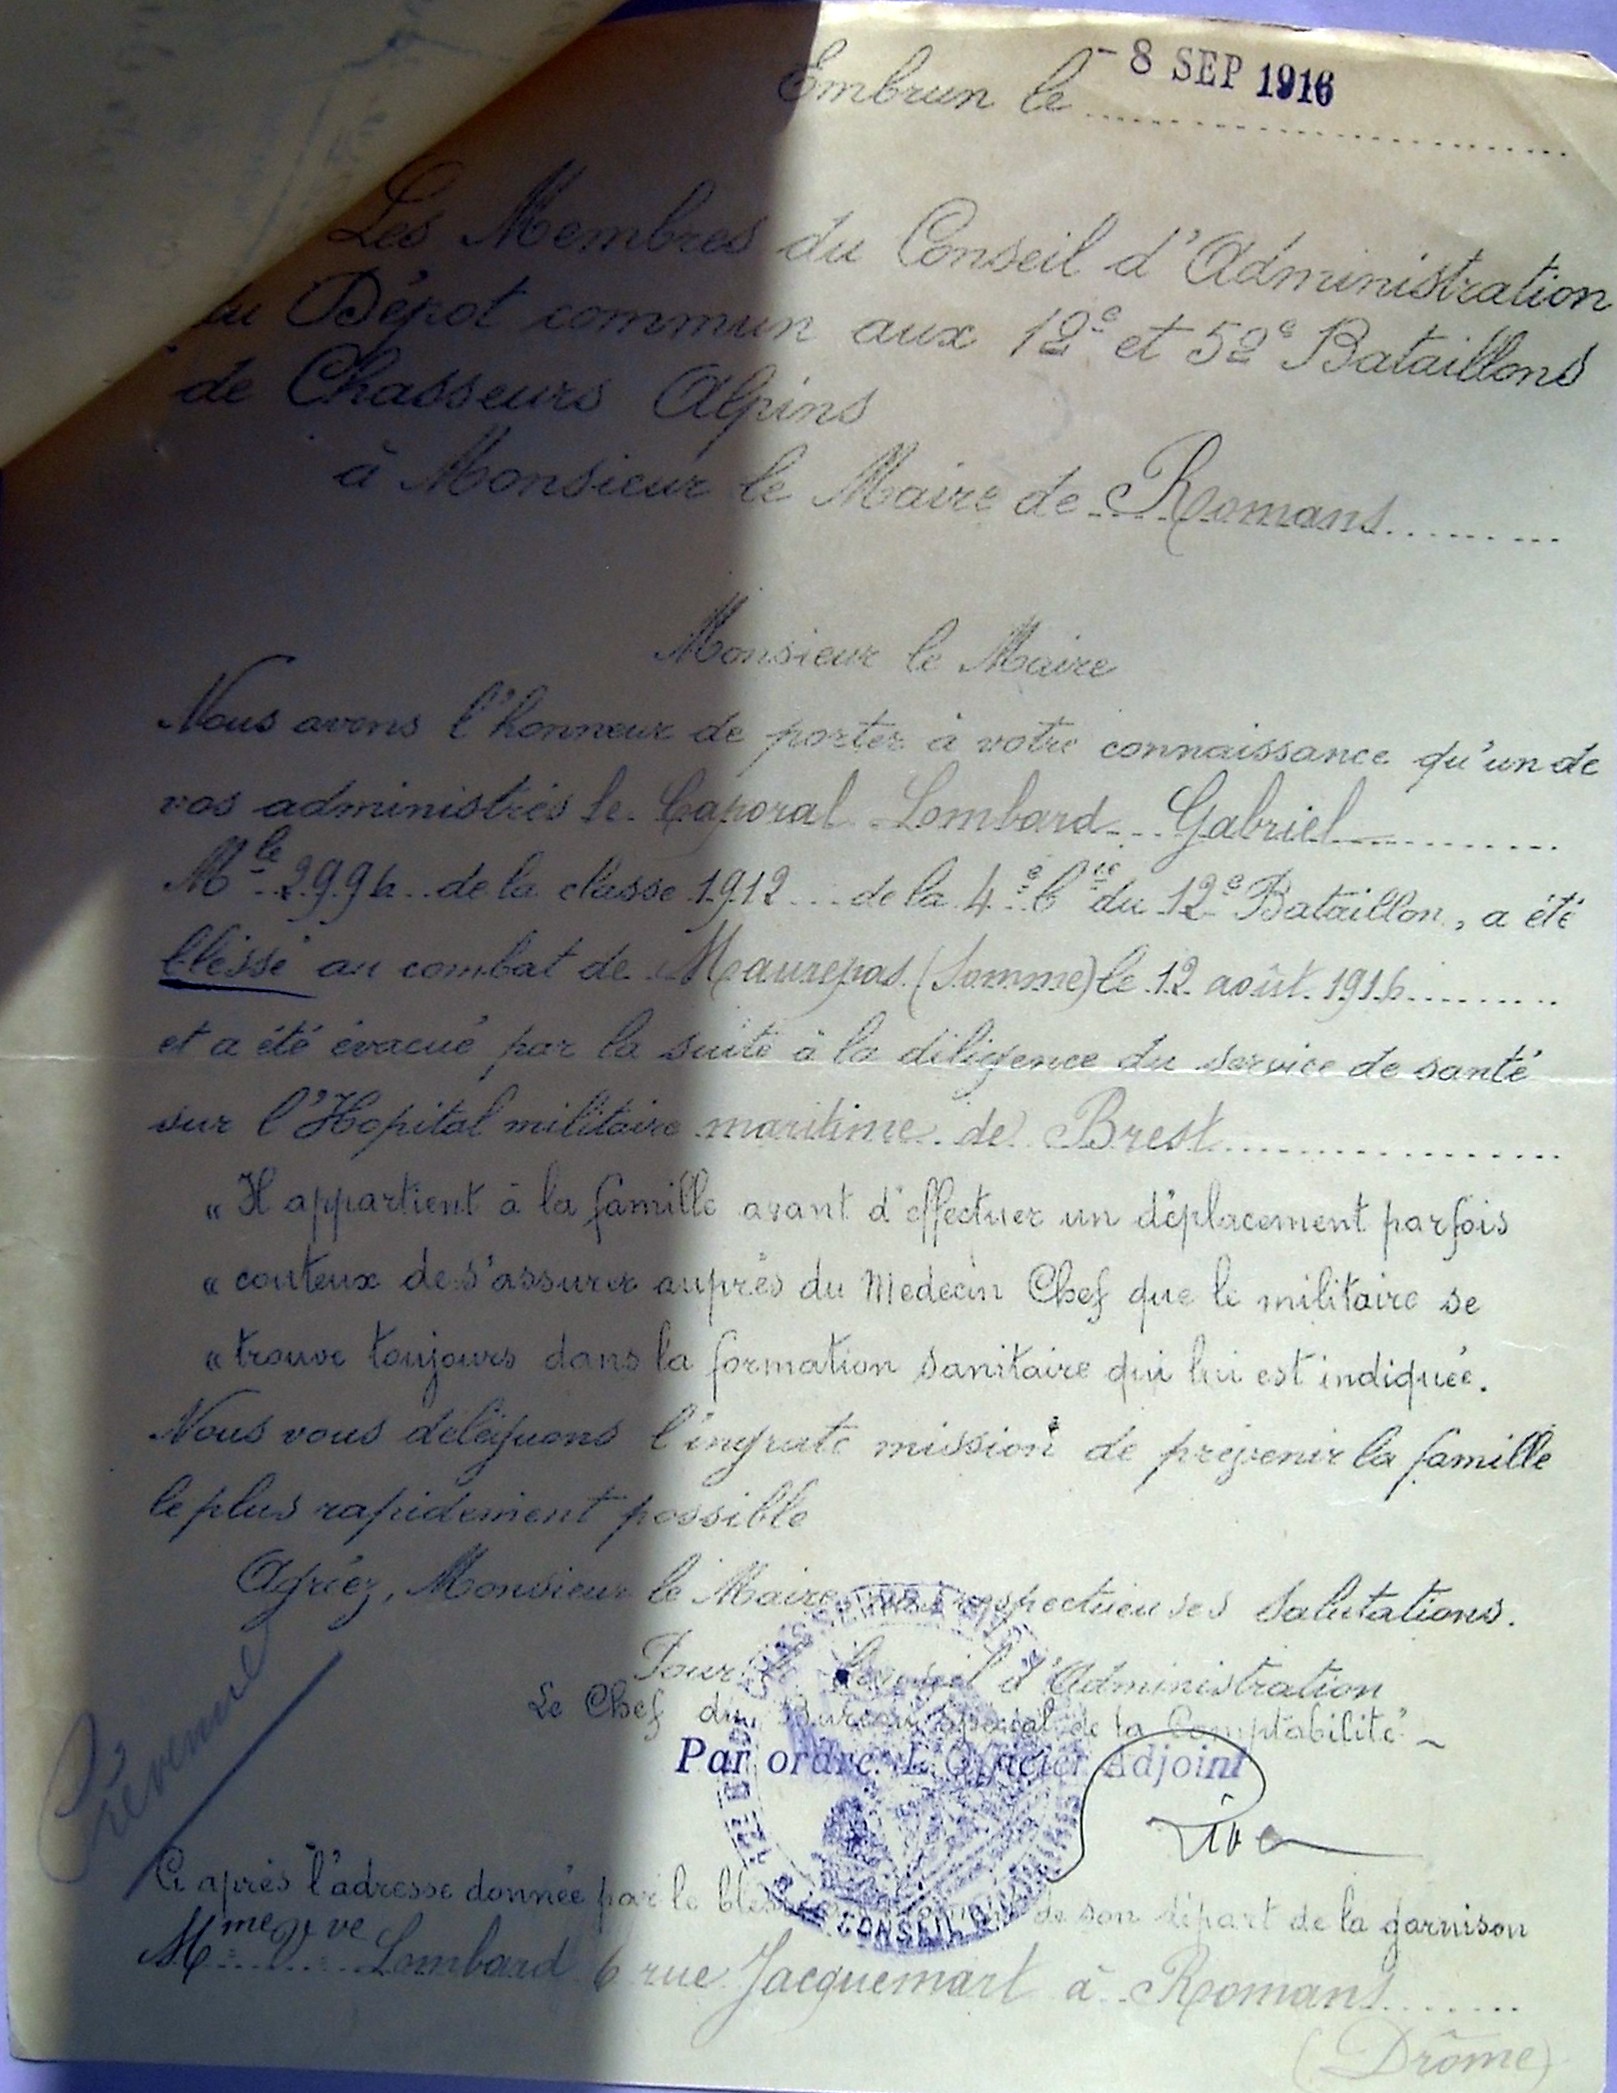 Embrun le - 8 SEP 1916
Les Membres du Conseil d'Administration
du Dépot commun aux 12e et 52e Bataillons
de Chasseurs Alpins
à Monsieur le Maire de Romans
Monsieur le Maire
Nous avons l'honneur de porter à votre connaissance qu'un de
vos administrés le Caporal Lombard Gabriel
Mle 2996 de la classe 1912 de la 4e Cie du 12e Bataillon, a été
blessé au combat de Maurepas (Somme) le 12 août 1916
et a été évacué par la suite à la diligence du service de santé
sur l'Hopital militaire maritime de Brest
"Il appartient à la famille avant d'effectuer un déplacement parfois
"couteux de s'assurer auprès du Medecin Chef que le militaire se
"trouve toujours dans la formation sanitaire qui lui est indiquée.
Nous vous déléguons l'ingrate mission de prévenir la famille
le plus rapidement possible
Agréez, Monsieur le Maire, nos respectueuses salutations.
Pour le Conseil d'Administration
Le Chef du Bureau spécial de la Comptabilité
Par ordre: L'Officier Adjoint
Prévenue
Ci après l'adresse donnée par le blessé de son départ de la garnison
Mme Vve Lombard 6 rue Jacquemart à Romans
(Drôme)
CONSEIL D'